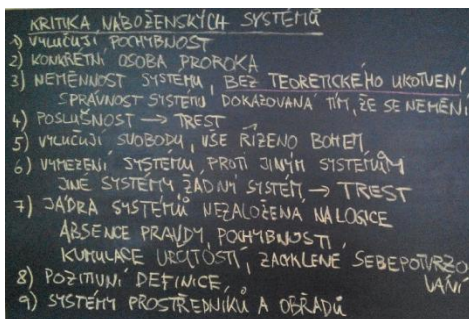 KRITIKA NÁBOŽENSKÝCH SYSTÉMŮ
1) VYLUČUJÍ POCHYBNOST
2) KONKRÉTNÍ OSOBA PROROKA
3) NEMĚNNOST SYSTÉMU, BEZ TEORETICKÉHO UKOTVENÍ
SPRÁVNOST SYSTÉMU DOKAZOVANÁ TÍM, ŽE SE NEMĚNÍ
4) POSLUŠNOST → TREST
5) VYLUČUJÍ SVOBODU, VŠE ŘÍZENO BOHEM
6) VYMEZENÍ SYSTÉMU PROTI JINÝM SYSTÉMŮM
JINÉ SYSTÉMY ŽÁDNÝ SYSTÉM → TREST
7) JÁDRA SYSTÉMŮ NEZALOŽENA NA LOGICE
ABSENCE PRAVDY, POCHYBNOSTI,
KUMULACE URČITOSTI, ZACYKLENÉ SEBEPOTVRZO
VÁNÍ
8) POZITIVNÍ DEFINICE,
9) SYSTÉMY PROSTŘEDNÍKŮ A OBŘADŮ